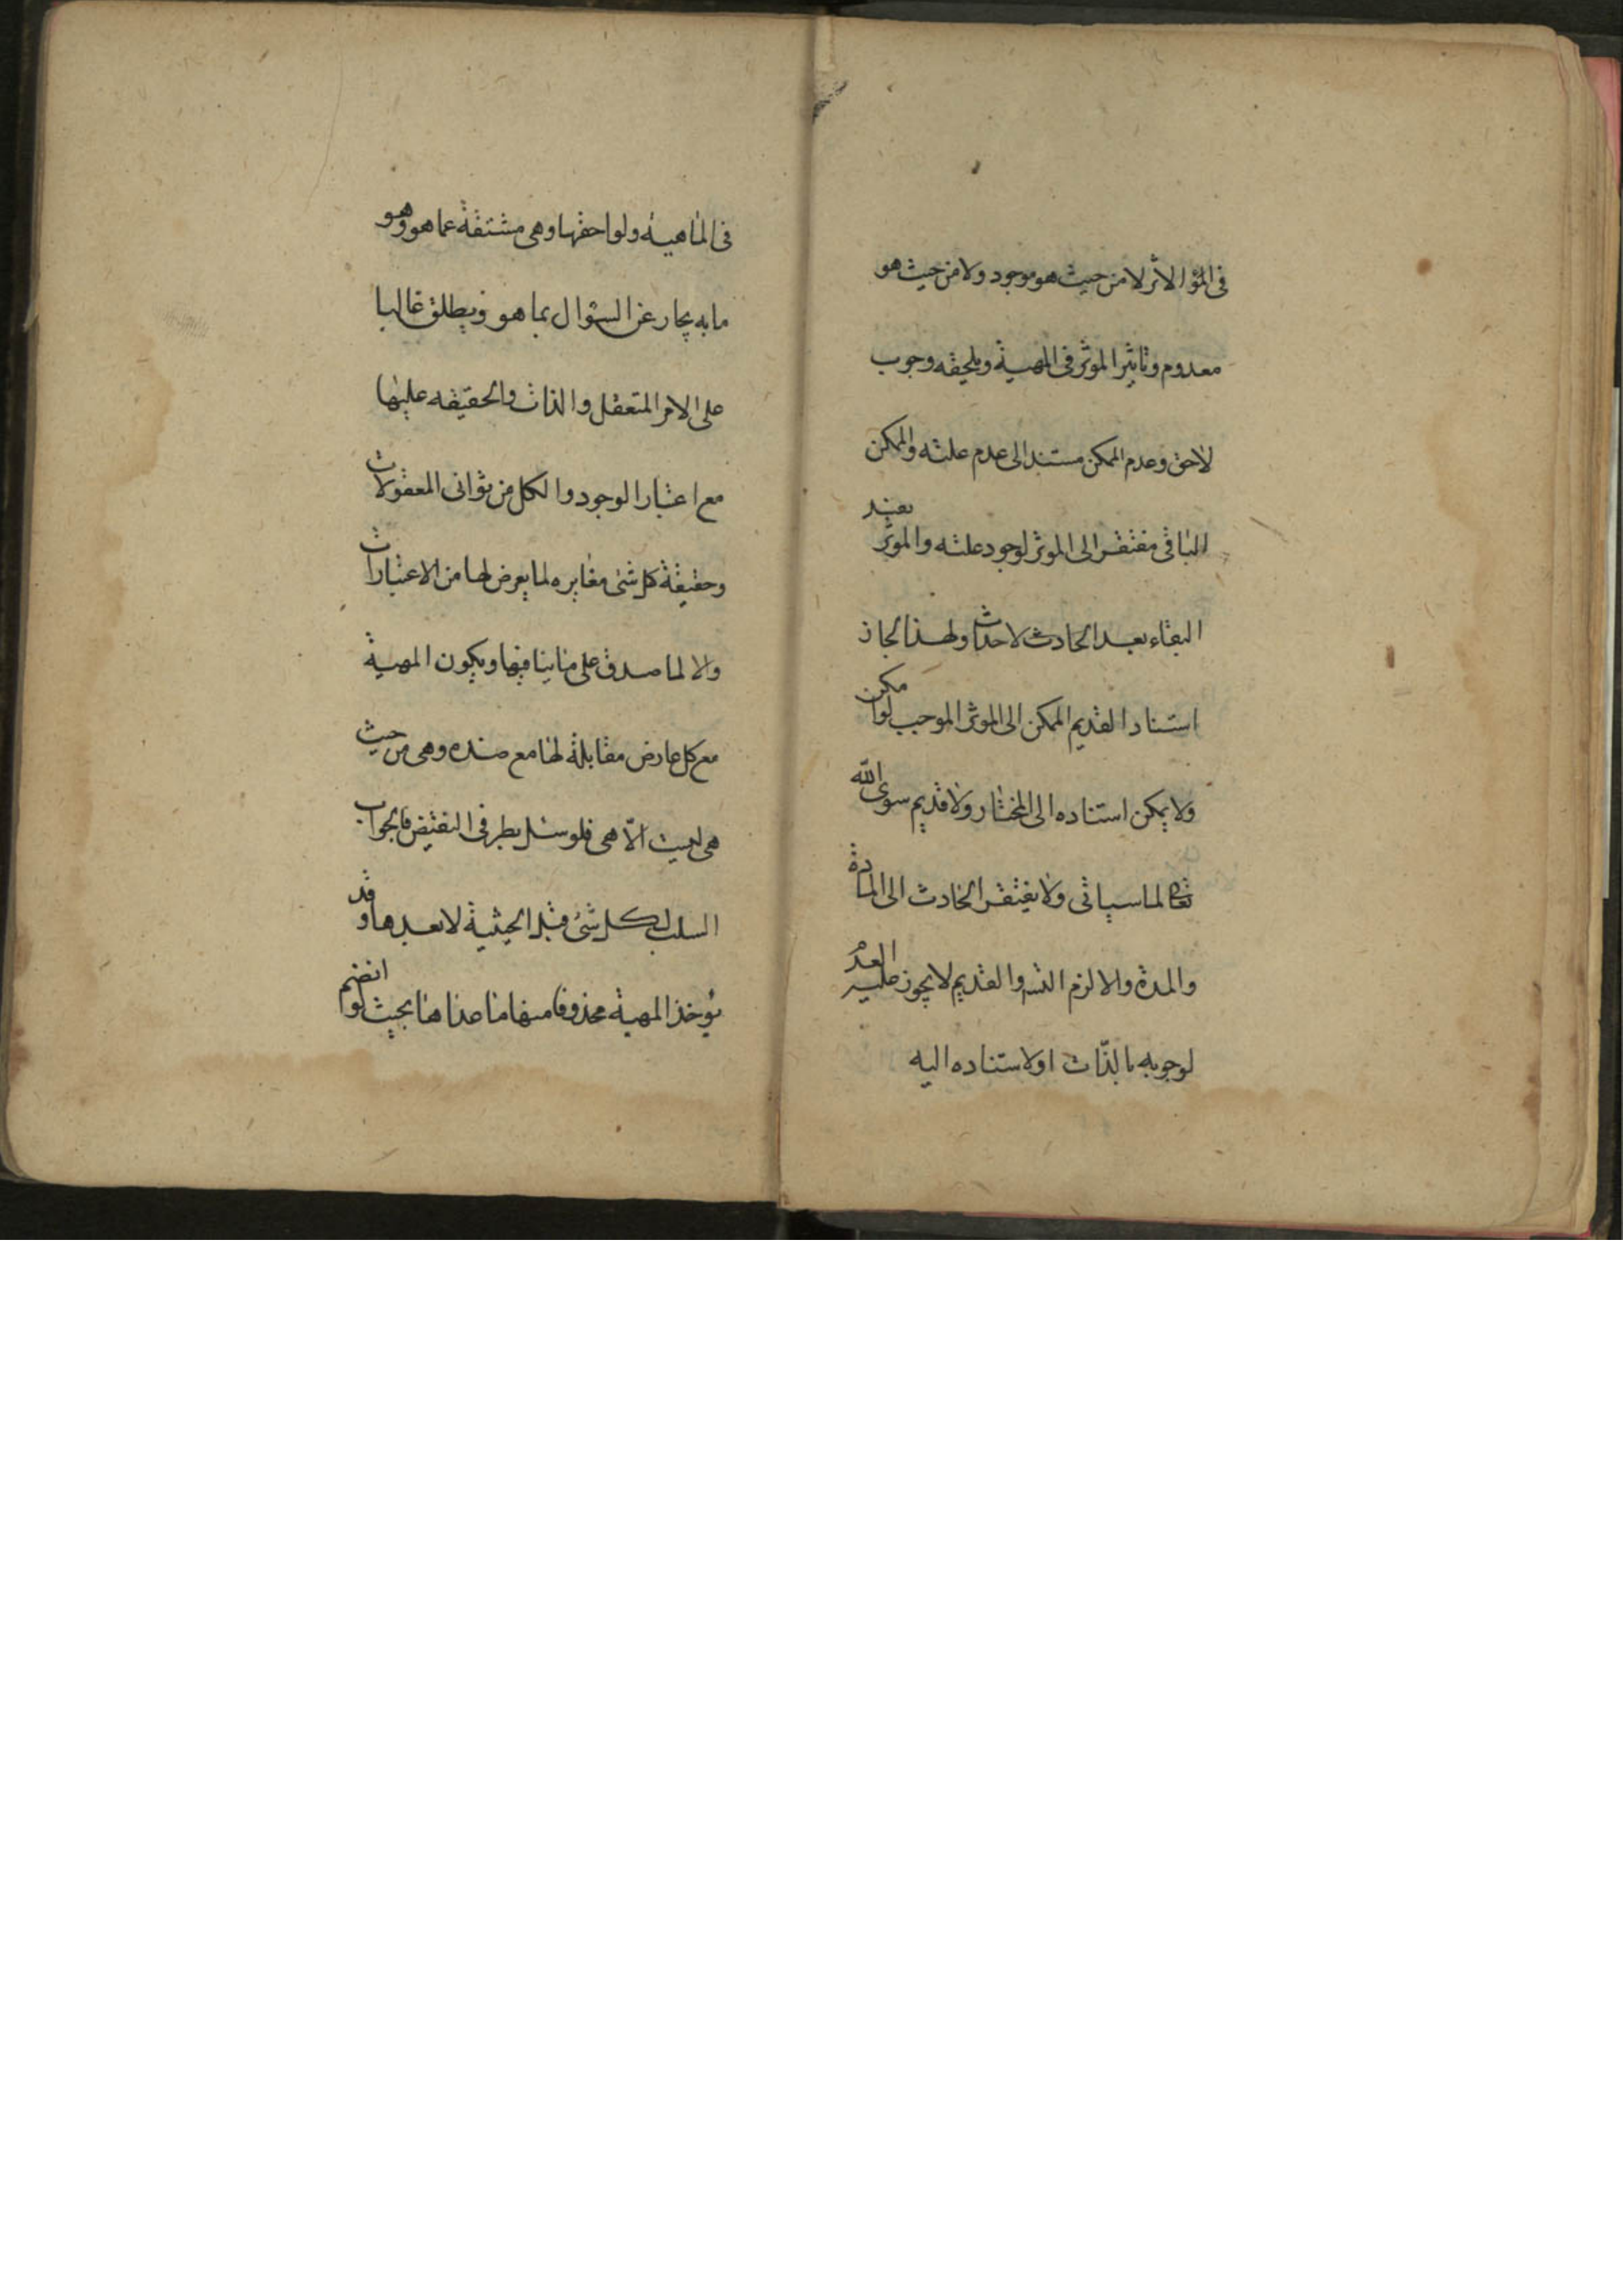 فى المؤ الاثر لا من حيث هو موجود ولا من حيث هو
معدوم وتاثير الموثر فى المهية ويلحقه وجوب
لاحق وعدم الممكن مستند الى عدم علته والممكن
الباقى مفتقر الى الموثر لوجود علته والموثر يفيد
البقاء بعد الحادث لاحداث ولهذا لجاز
استناد القديم الممكن الى الموثر الموجب لو امكن
ولا يمكن استناده الى المختار ولا قديم سوى الله
تعالى لما سياتى ولا يفتقر الحادث الى المادة
والمدة والا لزم التسـ والقديم لا يجوز عليه العدم
لوجوبه بالذّات او لاستناده اليه
فى الماهية ولواحقها وهى مشتقة عما هو وهو
ما به يجاب عن السؤال بما هو ويطلق غالبا
على الامر المتعقل والذات والحقيقه عليها
مع اعتبار الوجود والكل من ثوانى المعقولات
وحقيقة كل شئ مغايره لما يعرض لها من الاعتبارات
والا لما صدق على ما ينافيها ويكون المهية
مع كل عارض مقابلة لها مع ضده وهى من حيث
هى ليست الّا هى فلو سئل بطرفى النقيض فالجواب
السلب لكل شئ قبل الحيثية لا بعدها وقد
يؤخذ المهية محذوفا منها ما عداها بحيث لو انضم